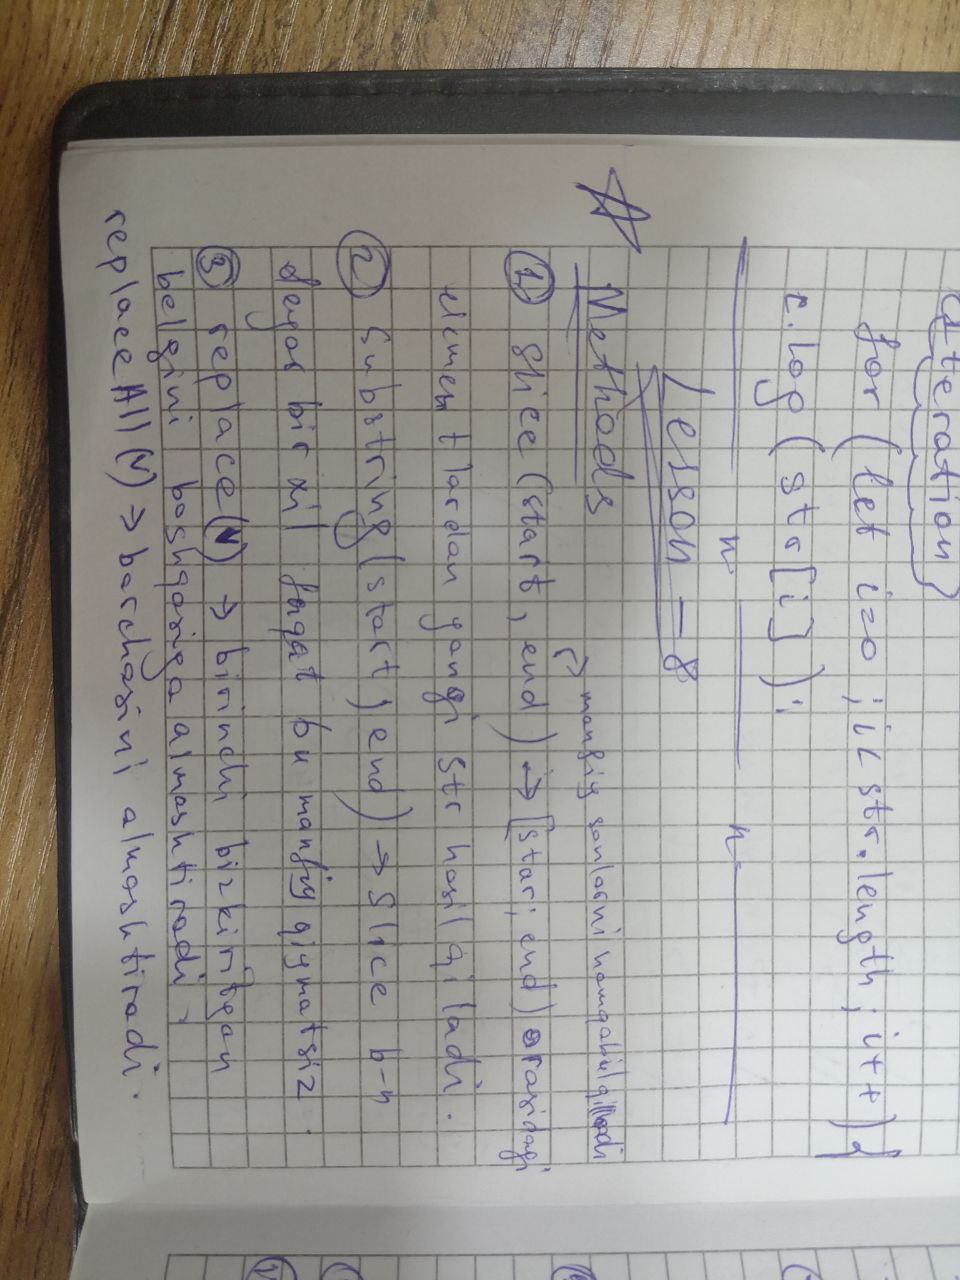 Iteration
for (let i=0 ; i< str.length ; i++){
c.log ( str[i] ) ;
Lesson - 8
Methods
manfiy sonlarni ham qabul qiladi
1 slice (start, end) → [star; end) orasidagi
elementlardan yangi str hosil qiladi.
2 Substring (start, end) → Slice b-n
deyar bir xil faqat bu manfiy qiymatsiz.
3 replace(v) → birinchi biz kiritgan
belgini boshqasiga almashtiradi.
replaceAll(v) → barchasini almashtiradi.